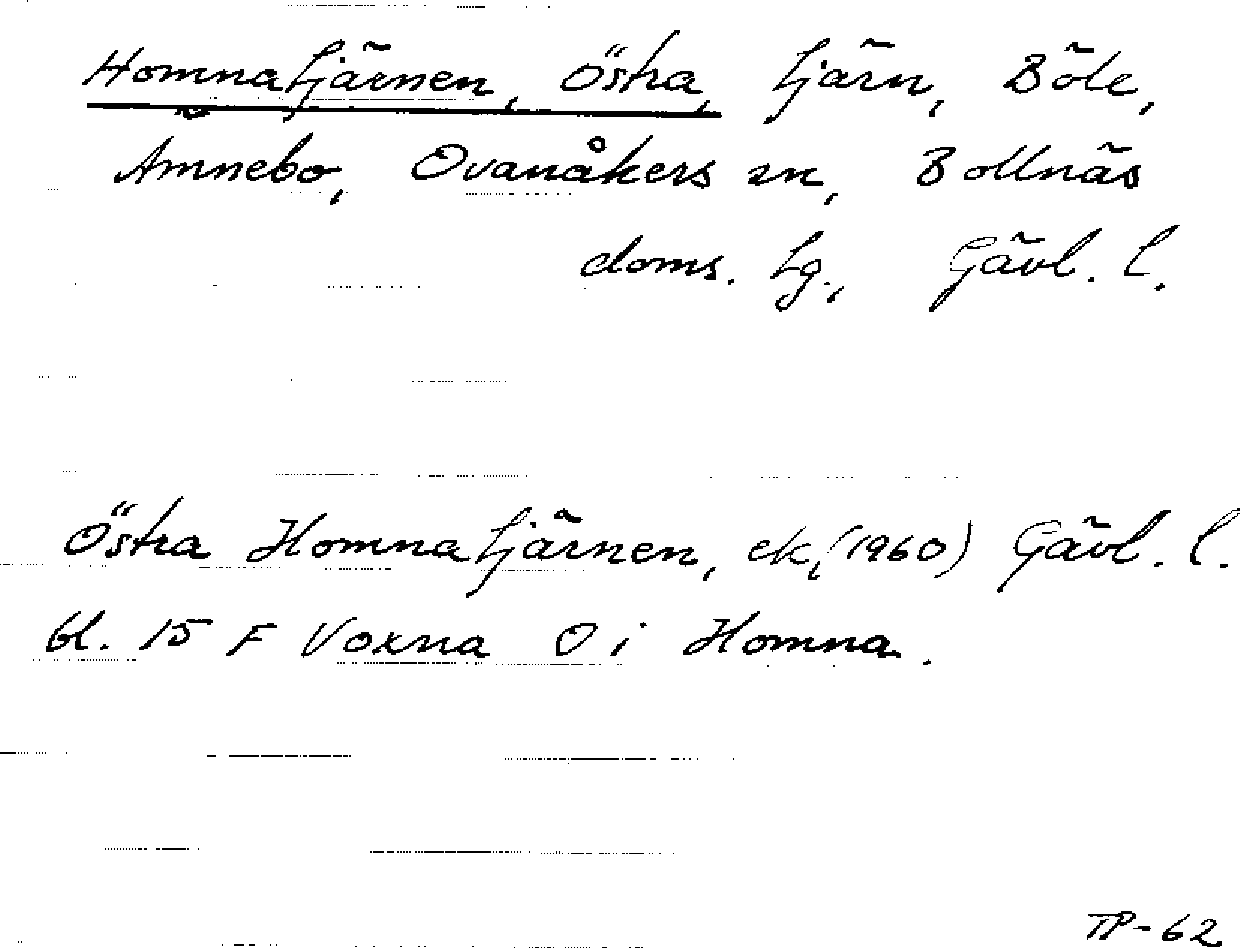 Homnatjärnen, Östra, tjärn, Böle,
Ämnebo, Ovanåkers sn, Bollnäs
doms. tg., Gävl. l.
Östra Homnatjärnen, ek, (1960) Gävl. l.
bl. 15 F Voxna O i Homna.
TP-62